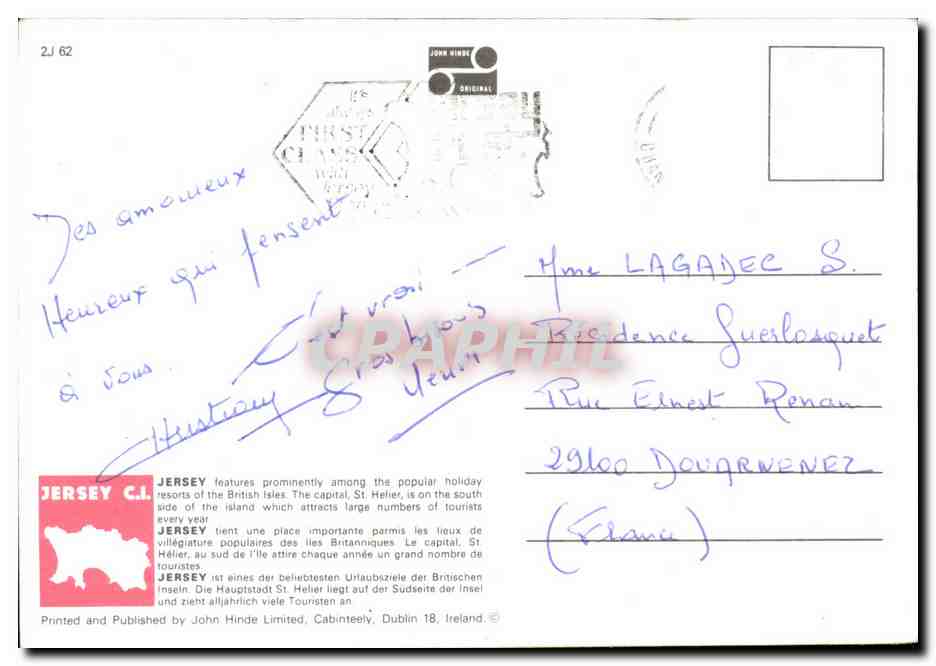 2J 62
JOHN HINDE
ORIGINAL
It's
always
FIRST
CLASS
with
Jersey
Des amoureux
Heureux qui pensent
à vous.
C'est vrai
Gros bisous
Mme LAGADEC S.
Résidence Guerlosquet
Rue Ernest Renan
29100 DOUARNENEZ
(France)
CPAPHIL
JERSEY C.I.
JERSEY features prominently among the popular holiday
resorts of the British Isles. The capital, St. Helier, is on the south
side of the island which attracts large numbers of tourists
every year
JERSEY tient une place importante parmis les lieux de
villégiature populaires des iles Britanniques. Le capital, St.
Hélier, au sud de l'île attire chaque année un grand nombre de
touristes.
JERSEY ist eines der beliebtesten Urlaubsziele der Britischen
Inseln. Die Hauptstadt St. Helier liegt auf der Sudseite der Insel
und zieht alljährlich viele Touristen an.
Printed and Published by John Hinde Limited, Cabinteely, Dublin 18, Ireland. ©